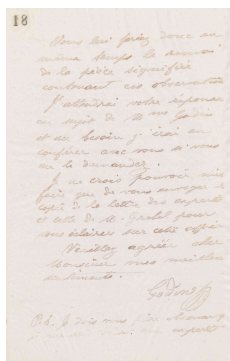 18
Vous lui feriez donc en
même temps le renvoi
de la pièce signifiée
contenant ces observations
J'attendrai votre réponse
au sujet de M me Godin
et au besoin j'irai en
conférer avec vous si vous
me le demandez.
Je ne crois pouvoir mieux
faire que de vous envoyer
copie de la lettre des
et celle de M. Grebel pour
vous éclairer sur cette
Veuillez agréer cher
Monsieur mes meilleurs
sentiments.
Godin
P.S. Je dois vous dire